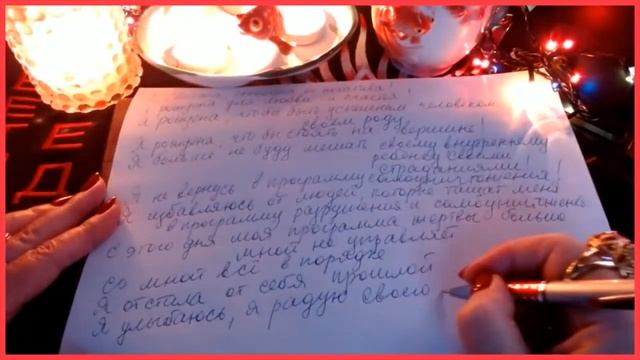 рождена для любви и счастья!
Я рождена, чтобы быть успешным человеком
своем роду
Я рождена, чтобы стоять на вершине!
Я больше не буду мешать своему внутреннему
ребенку своими
страданиями!
Я не вернусь в программу самоуничтожения!
Я избавляюсь от людей, которые тащат меня
в программу разрушения и самоуничтожения
С этого дня моя программа жертвы больше
мной не управляет
Со мной всё в порядке
Я отстала от себя прошлой
Я улыбаюсь, я радую своего